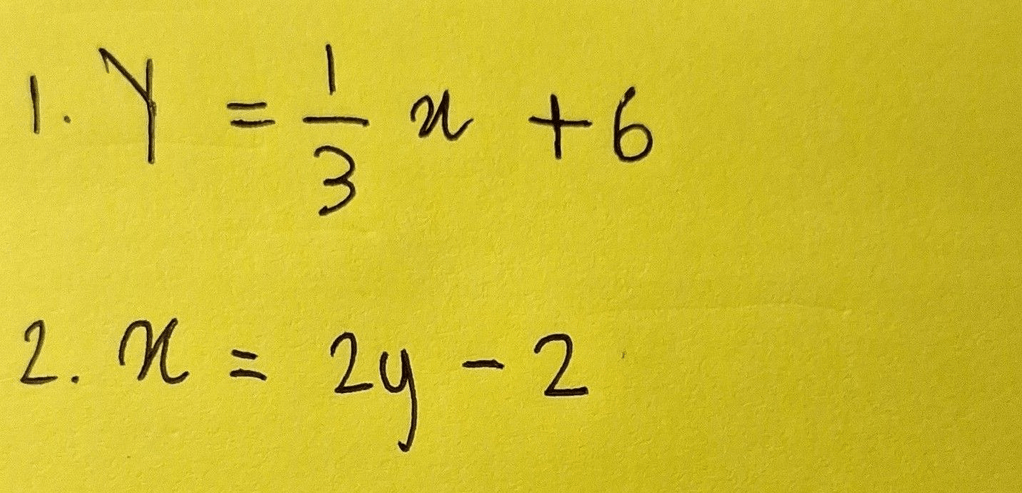 1. Y = 1/3 x + 6
2. x = 2y - 2